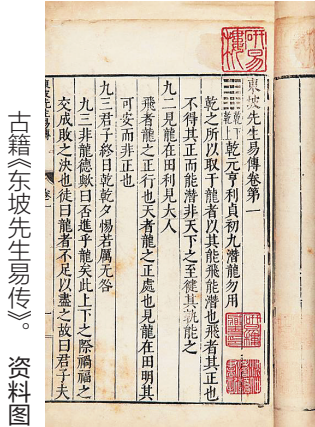 東坡先生易傳卷第一
乾下乾上 乾元亨利貞初九潛龍勿用
乾之所以取于龍者以其能飛能潛也飛者其正也
不得其正而能潛非天下之至健其孰能之
九二見龍在田利見大人
飛者龍之正行也天者龍之正處也見龍在田明其
可安而非正也
九三君子終日乾乾夕惕若厲无咎
九三非龍德歟曰否進乎龍矣此上下之際禍福之
交成敗之決也徒曰龍者不足以盡之故曰君子夫
東坡先生易傳
卷一
一
研易樓
古籍《东坡先生易传》。 资料图